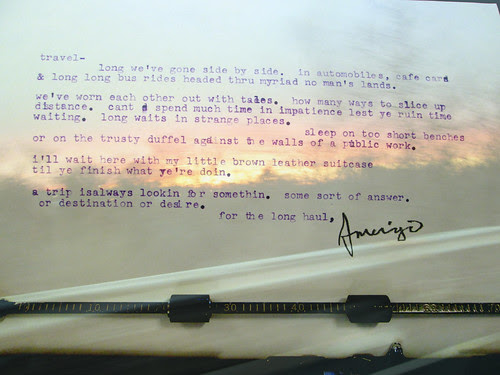 travel-
long we've gone side by side. in automobiles, cafe card
& long long bus rides headed thru myriad no man's lands.
we've worn each other out with tales. how many ways to slice up
distance. cant spend much time in impatience lest ye ruin time
waiting. long waits in strange places.
sleep on too short benches
or on the trusty duffel against the walls of a public work.
i'll wait here with my little brown leather suitcase
til ye finish what ye're doin.
a trip isalways lookin for somethin. some sort of answer.
or destination or desire.
for the long haul,
Amerigo
10 30 40